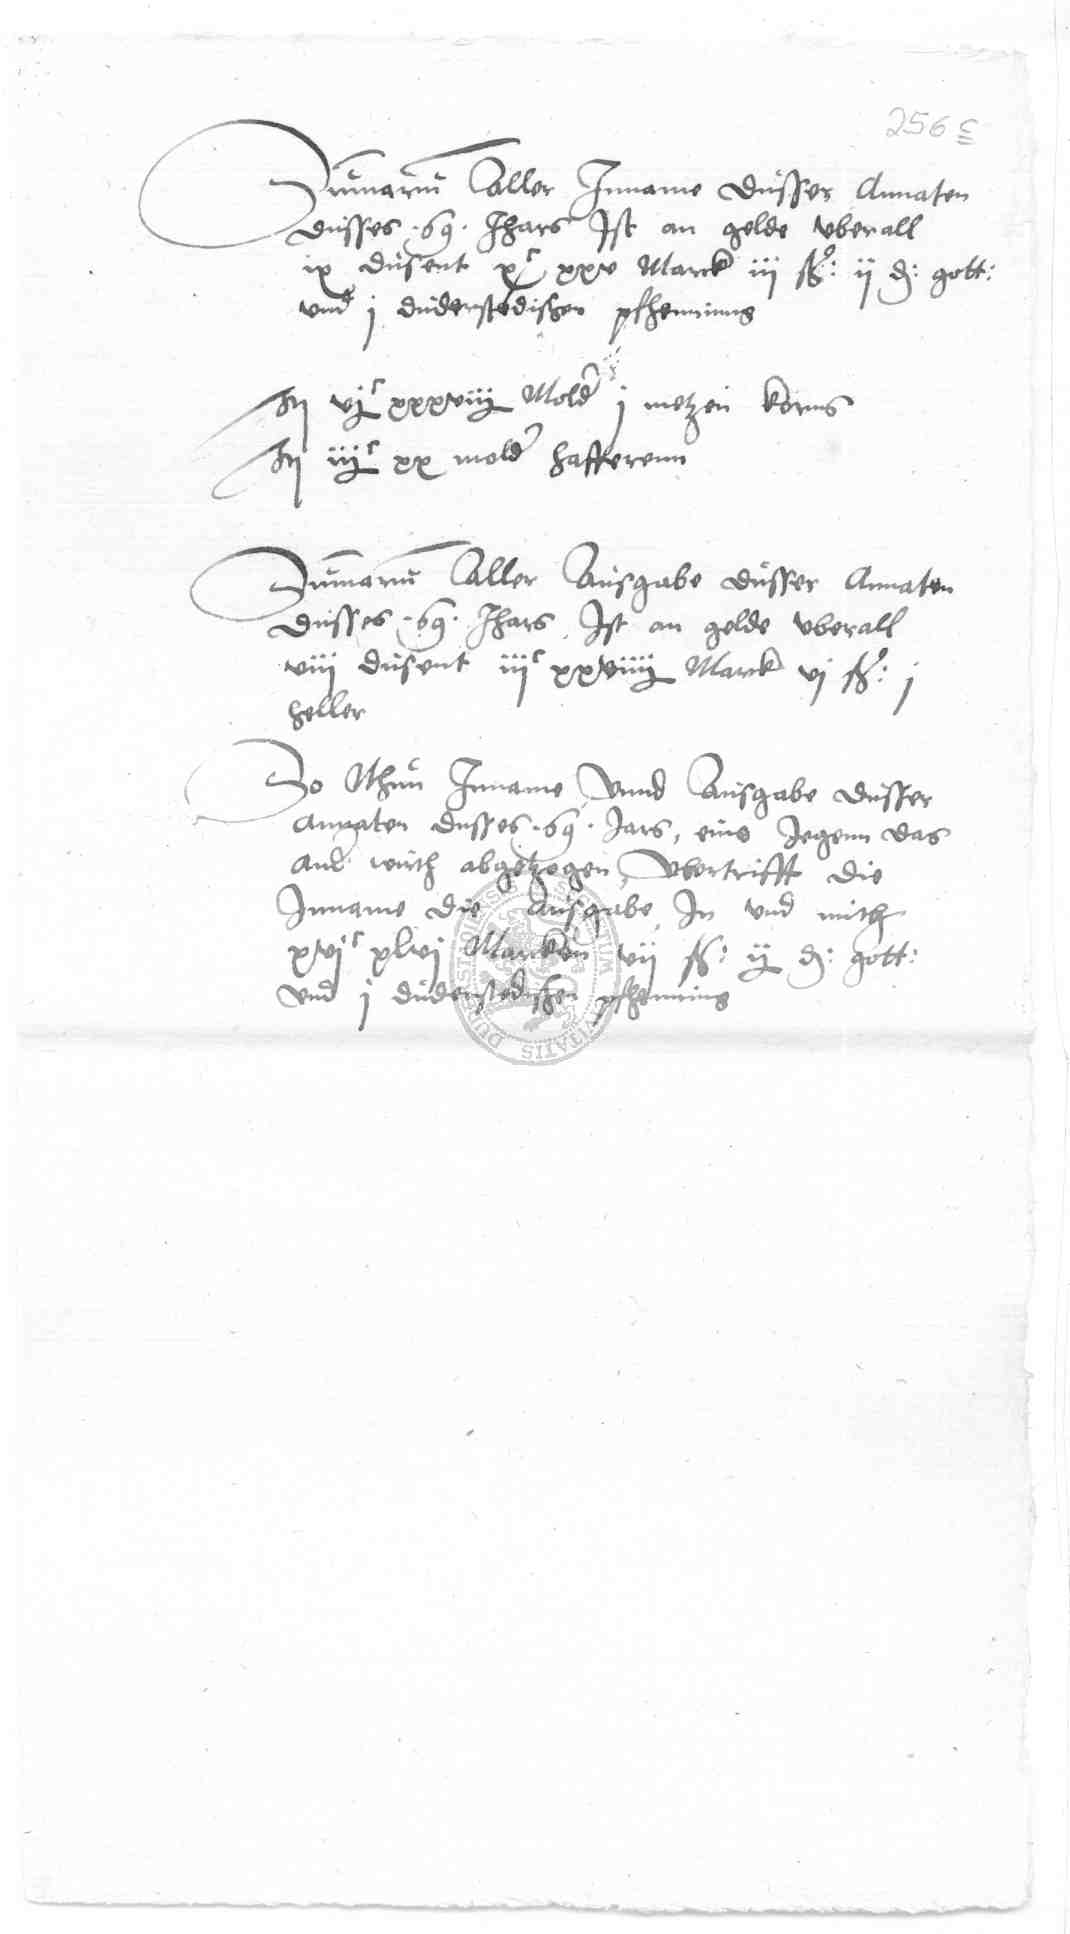 256 c
Summarum Aller Inname dusser Annaten
dusses .69. Jhars Ist an gelde vberall
ix dusent xc xxv Marck iij ß: ij d: gott:
vnd j duderstedischer pfhenning
It vjc xxxviij Mold j metzen korns
It iiijc xx mold hafferenn
Summarum Aller Ausgabe dusser Annaten
dusses .69. Jhars Ist an gelde vberall
viij dusent iijc xxviiij Marck vj ß: j
heller
So Nhun Inname Vnnd Ausgabe dusser
Annaten dusses .69. Jars, eins Jegenn das
and wirth abgetzogen, Vbertrifft die
Inname die Ausgabe In vnd mith
xvjc xlvj Marcken vij ß: ij d: gott:
vnd j duderstedischen pfhenning